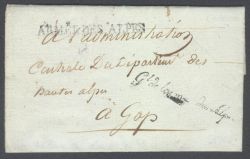 ARMÉE DES ALPES
a l'administration
Centrale du département des
hautes alpes
à Gap